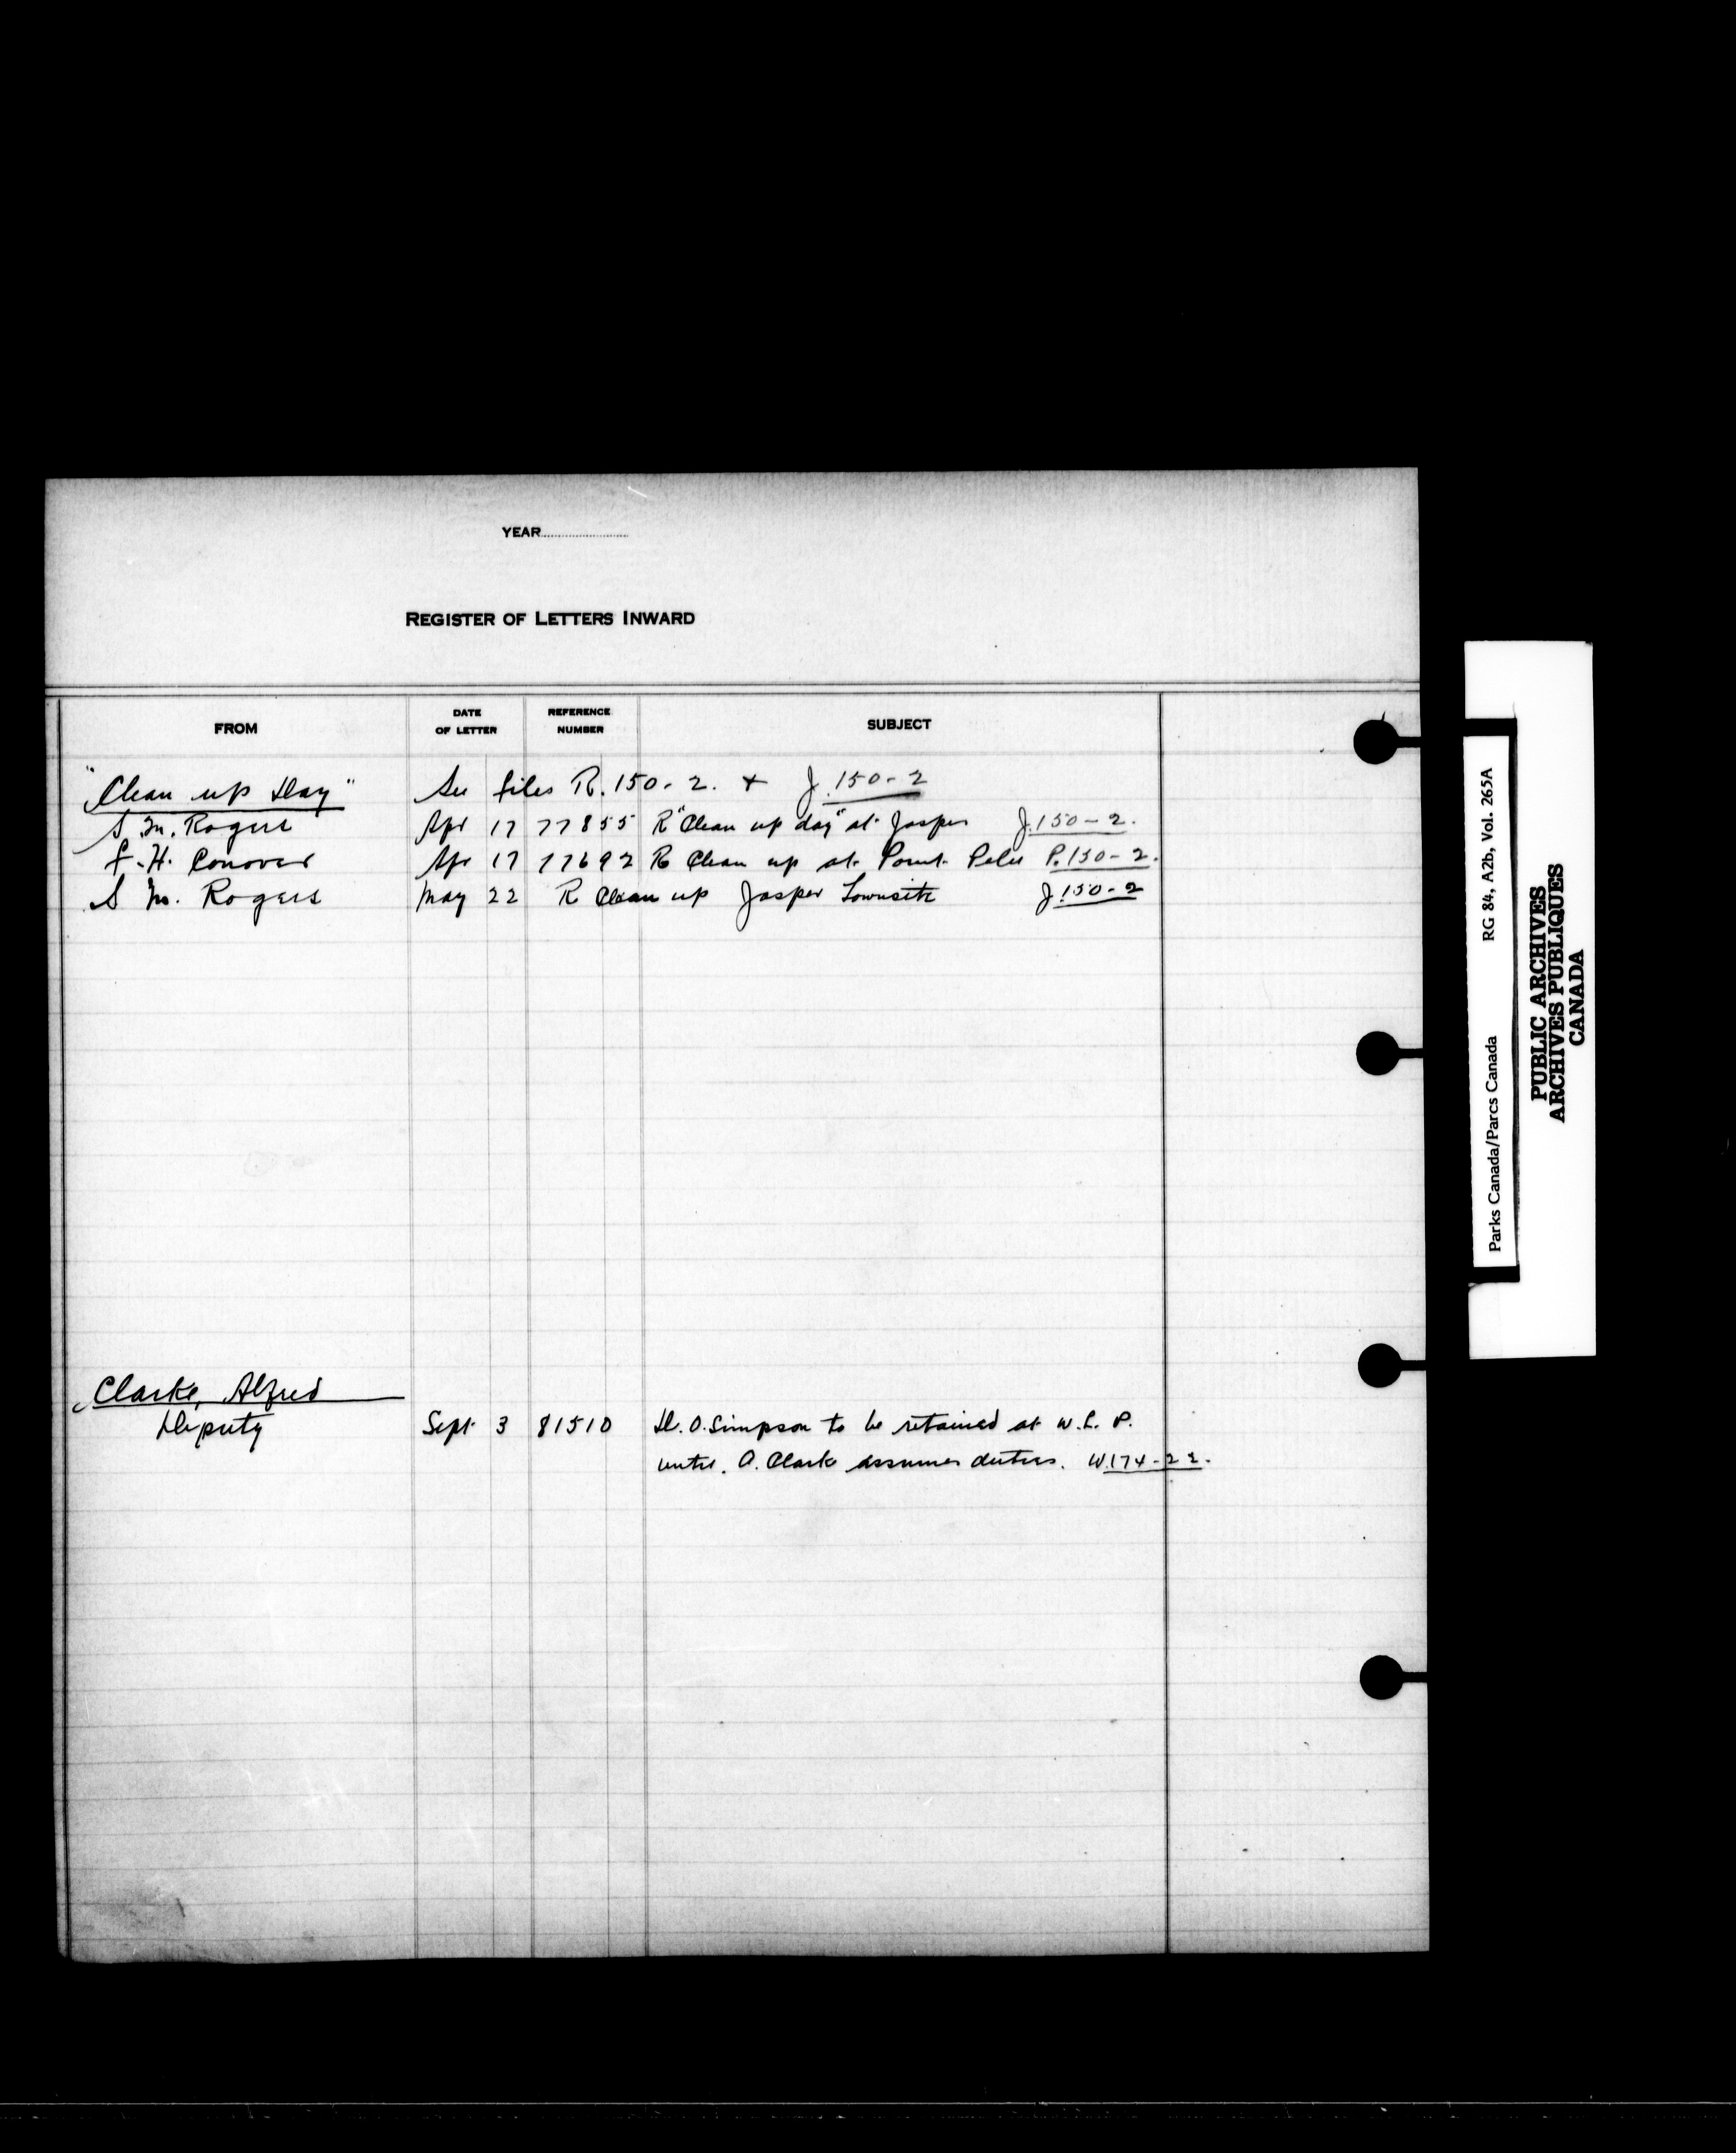 YEAR
REGISTER OF LETTERS INWARD
FROM DATE OF LETTER REFERENCE NUMBER SUBJECT
"Clean up Day" See files R.150-2. + J.150-2
S. M. Rogers Apr 17 77855 R "Clean up day" at Jasper J.150-2.
F. H. Conover Apr 17 77692 R Clean up at Point Pelee P.150-2.
S M. Rogers May 22 R Clean up Jasper Townsite J.150-2
Clarke, Alfred
Deputy Sept 3 81510 D. O. Simpson to be retained at W.L.P.
until. A. Clark assumes duties. W.174-22.
Parks Canada/Parcs Canada RG 84, A2b, Vol. 265A
PUBLIC ARCHIVES
ARCHIVES PUBLIQUES
CANADA